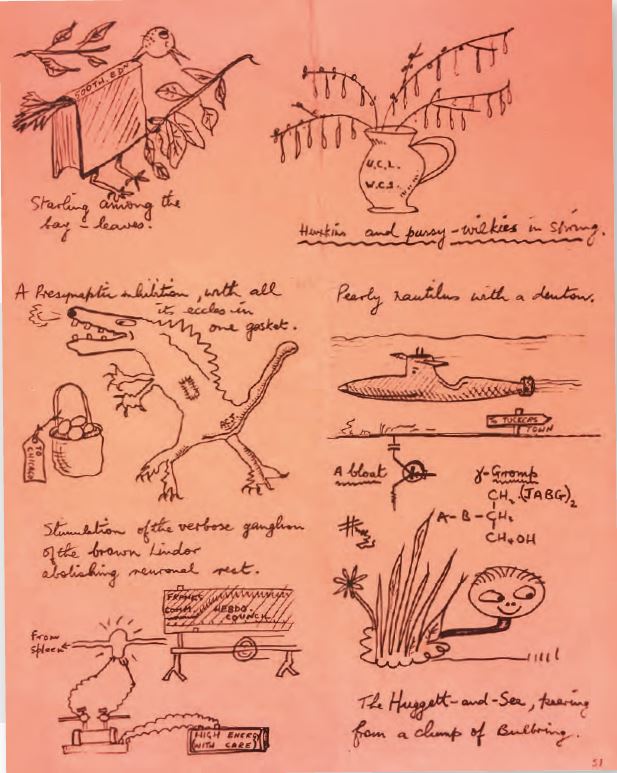 500TH. EDN
Starling among the
bay-leaves.
U.C.L.
W.C.1.
Huxkins and pussy-wilkies in Spring.
A Presynaptic inhibition, with all
its eccles in
one gasket.
A.C.T.
TO
CHICAGO
Pearly nautilus with a denton.
TO TUCKERS
TOWN
A bloat
γ-Gromp
CH2.(JABG)2
A-B-CH2
CH2OH
Stimulation of the verbose ganglion
of the brown Lindor
abolishing neuronal rest.
FRANKS
COMM. HEBDO.
COUNCIL
From
Spleen
HIGH ENERGY
(WITH CARE)
The Huggett-and-See, peering
from a clump of Bulbring.
51